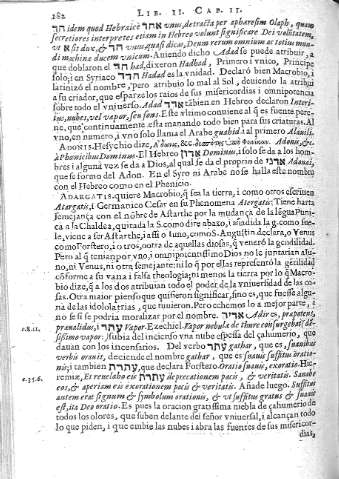 282 LIB. II. CAP. II.
הד idem quod Hebraicè אחד unus, detracta per aphæresim Olaph, quam
secretiores interpretes etiam in Hebræo volunt significare Dei volūtatem,
ut א sit dux, & חד unus, quasi dicas, Deum rerum omnium ac totius mun-
di machinæ ducem unicum. Auiendo dicho, Adad se puede atribuir, a
que doblaron el הד had, dixeron Hadhad, Primero i vnico, Principe
solo; i en Syriaco הדד Hadad es la vnidad. Declarò bien Macrobio, i
latinizò el nombre, pero atribuio lo mal al Sol, deuiendo la atribuir
a su criador, que esparze los raios de sus misericordias i omnipotencia
sobre todo el vniuerso. Adad אד tābien en Hebreo declaron Interi-
tus, nubes, vel vapor, seu fons. Este vltimo conuiene al q̄ es fuente pere-
ne, que continuamente esta manando todo bien para sus criaturas. Al
vno, en numero, i vno solo llama el Arabe guahid i al primero
ADONIS. Hesychio dize,
Phœnicibus Dominus. El Hebreo אדון Dominus, i solo se da a los hom-
bres i alguna vez se da a Dios, al qual se da el proprio de אדני Adonai,
que se formo del Adon. En el Syro ni Arabe no se halla este nombre
con el Hebreo como en el Phenicio.
ADARGATIS. quiere Macrobio, q̄ sea la tierra, i como otros escriuen
Atergatis, i Germanico Cesar en su Phenomena Atergatis: Tiene harta
semejança con el nōbre de Astarthe por la mudança de la lēgua Puni-
ca a la Chaldea, quitada la S. como dixe abaxo, i añadida la g. como sue-
le, viene a ser Astarthe, i assi o Iuno, como S. Augustin declara, o Venus
como Forstero, i o tros, nota de aquellas diosas, q̄ venerò la gentilidad.
Pero al q̄ tenian por vno, i omnipotentissimo Dios no le juntarian a Iu-
no, ni Venus, ni otra semejante: ni lo q̄ por ellas representò la gētilidad
conuenia a su vana i falsa theologia; ni menos la tierra por lo q̄ Macro-
bio dize, q̄ a los dos atribuian todo el poder de la vniuersidad de las co-
sas. Otra maior piensoque quisieron significar, sino es, que fuesse algu-
na de las idololatrias, que tuuieron. Pero echemos lo a mejor parte, i
no se si se podria moralizar por el nombre. אדיר Adir es, præpotens,
prænalidus, i עתר Vapor. Ezechiel. Vapor nebulæ de thure consurgebat dē- c.8.11.
sissimo vapor: i subia del nciēso vna nube espessa del çahumerio, que
dauan con los incensarios. Del verbo עתר gathar, que es, suauibus
verbis orauit, deciende el nombre gathar, que es suauis suffitus oratio-
nis; i tambien עתרת que declara Forstero. Oratio suauis, exoratio. Hie-
remias, Et reuelabo eis עתרת deprecationem pacis, & veritatis. Sanabo c.33.6.
eos, & aperiam eis exorationem pacis & veritatis. Añade luego. Suffitus
autem erat signum & symbolum orationis, & vt suffitus gratus & suauis
est, ita Deo oratio. Es pues la oracion gratissima niebla de çahumerio de
todos los olores, que suben delante del señor vniuersal, i alcançan todo
lo que piden, i que embie las nubes i abra las fuentes de sus misericor-
dias,